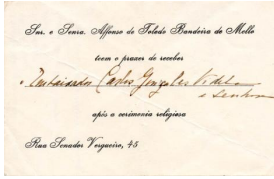 Snr. e Senra. Affonso de Toledo Bandeira de Mello
teem o prazer de receber
o Embaixador Carlos Gonzales Videla
e Senhora
após a cerimonia religiosa
Rua Senador Vergueiro, 45